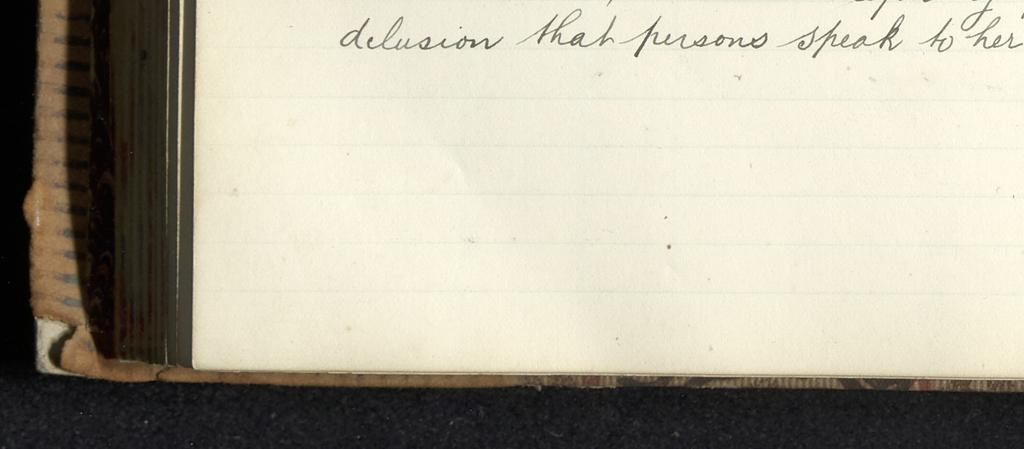 delusion that persons speak to her